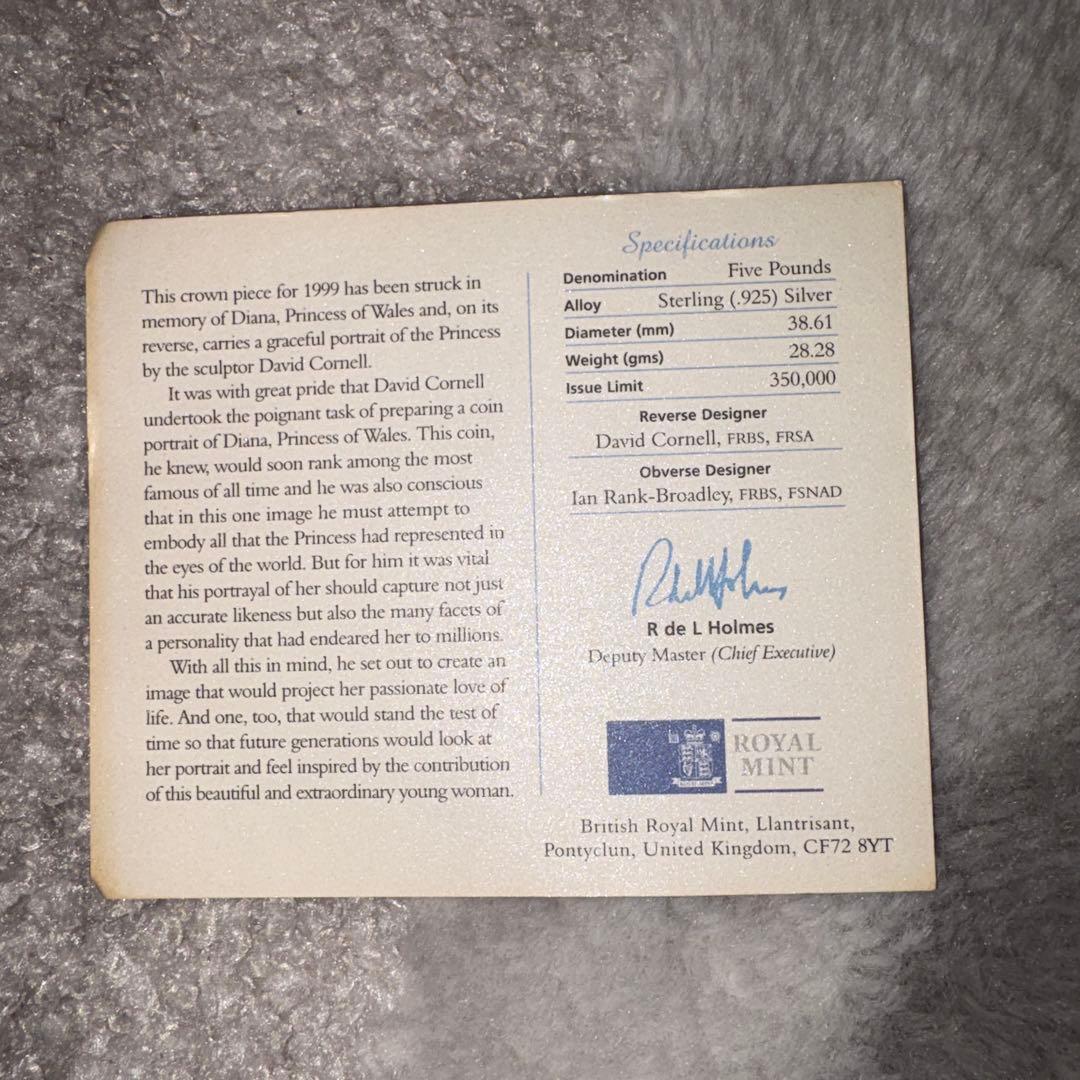 This crown piece for 1999 has been struck in
memory of Diana, Princess of Wales and, on its
reverse, carries a graceful portrait of the Princess
by the sculptor David Cornell.
It was with great pride that David Cornell
undertook the poignant task of preparing a coin
portrait of Diana, Princess of Wales. This coin,
he knew, would soon rank among the most
famous of all time and he was also conscious
that in this one image he must attempt to
embody all that the Princess had represented in
the eyes of the world. But for him it was vital
that his portrayal of her should capture not just
an accurate likeness but also the many facets of
a personality that had endeared her to millions.
With all this in mind, he set out to create an
image that would project her passionate love of
life. And one, too, that would stand the test of
time so that future generations would look at
her portrait and feel inspired by the contribution
of this beautiful and extraordinary young woman.
Specifications
Denomination Five Pounds
Alloy Sterling (.925) Silver
Diameter (mm) 38.61
Weight (gms) 28.28
Issue Limit 350,000
Reverse Designer
David Cornell, FRBS, FRSA
Obverse Designer
Ian Rank-Broadley, FRBS, FSNAD
R de L Holmes
Deputy Master (Chief Executive)
ROYAL
MINT
British Royal Mint, Llantrisant,
Pontyclun, United Kingdom, CF72 8YT